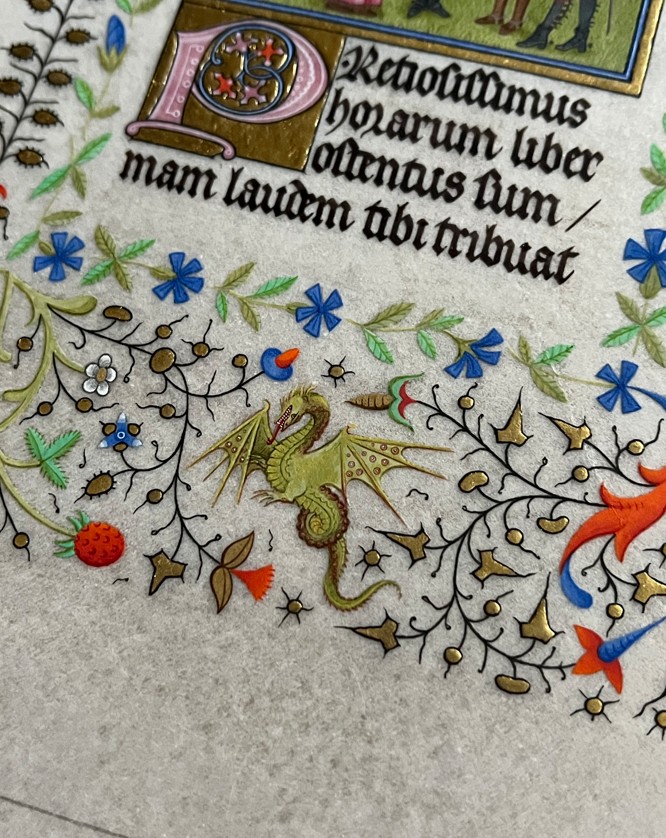 PRetiosissimus
horarum liber
ostentus sum /
mam laudem tibi tribuat